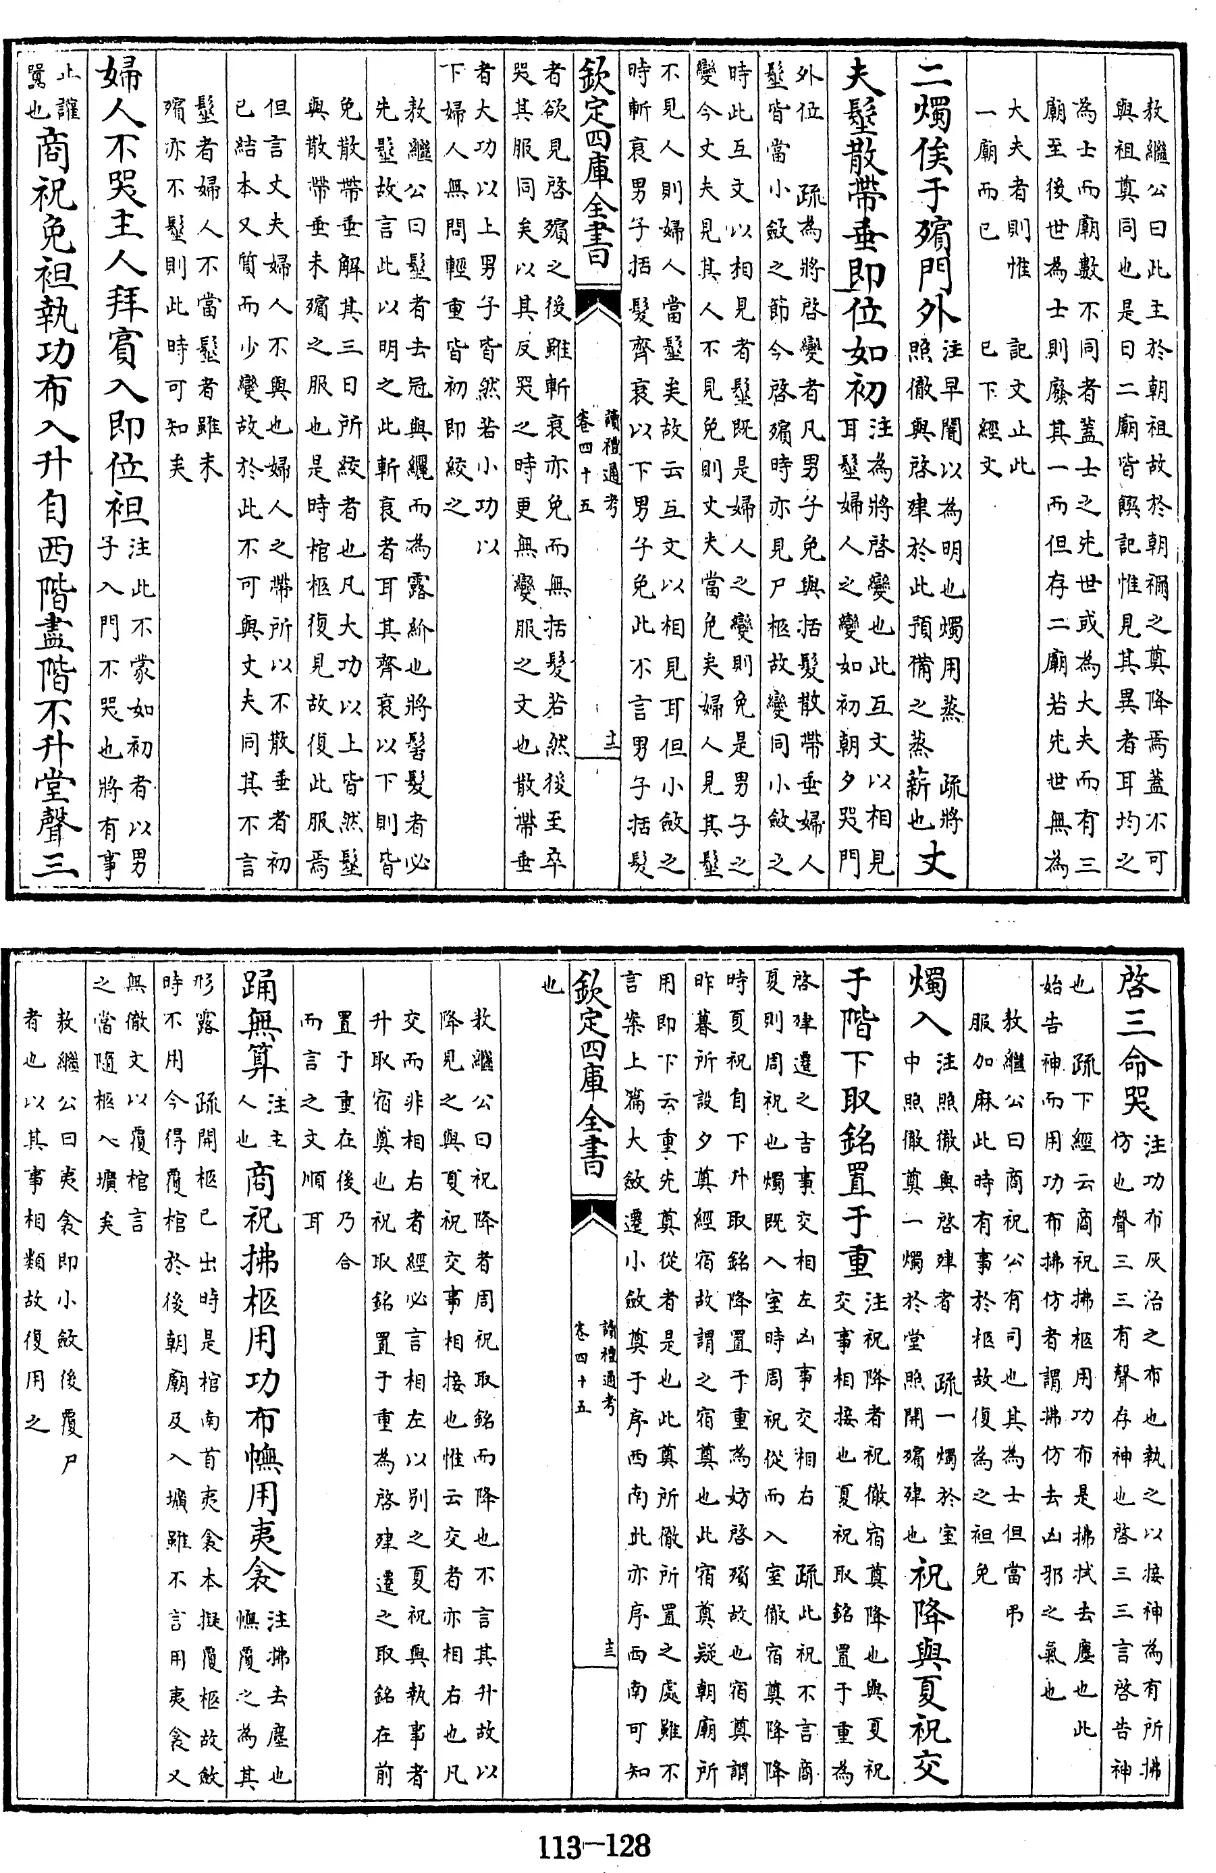 敖繼公曰此主於朝祖故於朝禰之奠降焉蓋不可
與祖奠同也是日二廟皆饌記惟見其異者耳均之
為士而廟數不同者蓋士之先世或為大夫而有三
廟至後世為士則廢其一而但存二廟若先世無為
大夫者則惟
一廟而已
記文止此
已下經文
二燭俟于殯門外注早闇以為明也燭用蒸 疏將照徹與啓肂於此預備之蒸薪也丈
夫髽散帶垂即位如初注為將啓變也此互文以相見耳髽婦人之變如初朝夕哭門
外位 疏為將啓變者凡男子免與括髮散帶垂婦人
髽皆當小斂之節今啓殯時亦見尸柩故變同小斂之
時此互文以相見者髽既是婦人之變則免是男子之
變今丈夫見其人不見免則丈夫當免矣婦人見其髽
不見人則婦人當髽矣故云互文以相見耳但小斂之
時斬衰男子括髮齊衰以下男子免此不言男子括髮
欽定四庫全書
讀禮通考
卷四十五
十二
者欲見啓殯之後雖斬衰亦免而無括髮若然後至卒
哭其服同矣以其反哭之時更無變服之文也散帶垂
者大功以上男子皆然若小功以
下婦人無問輕重皆初即絞之
敖繼公曰髽者去冠與纚而為露紒也將髻髮者必
先髽故言此以明之此斬衰者耳其齊衰以下則皆
免散帶垂解其三日所絞者也凡大功以上皆然髽
與散帶垂未殯之服也是時棺柩復見故復此服焉
但言丈夫婦人不與也婦人之帶所以不散垂者初
已結本又質而少變故於此不可與丈夫同其不言
髽者婦人不當髽者雖未
殯亦不髽則此時可知矣
婦人不哭主人拜賓入即位袒注此不蒙如初者以男子入門不哭也將有事
止讙囂也商祝免袒執功布入升自西階盡階不升堂聲三
啓三命哭注功布灰治之布也執之以接神為有所拂仿也聲三三有聲存神也啓三三言啓告神
也 疏下經云商祝拂柩用功布是拂拭去塵也此
始告神而用功布拂仿者謂拂仿去凶邪之氣也
敖繼公曰商祝公有司也其為士但當弔
服加麻此時有事於柩故復為之袒免
燭入注照徹與啓肂者 疏一燭於室中照徹奠一燭於堂照開殯肂也祝降與夏祝交
于階下取銘置于重注祝降者祝徹宿奠降也與夏祝交事相接也夏祝取銘置于重為
啓肂遷之吉事交相左凶事交相右 疏此祝不言商
夏則周祝也燭既入室時周祝從而入室徹宿奠降降
時夏祝自下升取銘降置于重為妨啓殯故也宿奠謂
昨暮所設夕奠經宿故謂之宿奠也此宿奠疑朝廟所
用即下云重先奠從者是也此奠所徹所置之處雖不
言案上篇大斂遷小斂奠于序西南此亦序西南可知
欽定四庫全書
讀禮通考
卷四十五
十三
也
敖繼公曰祝降者周祝取銘而降也不言其升故以
降見之與夏祝交事相接也惟云交者亦相右也凡
交而非相右者經必言相左以別之夏祝與執事者
升取宿奠也祝取銘置于重為啓肂遷之取銘在前
置于重在後乃合
而言之文順耳
踊無算注主人也商祝拂柩用功布幠用夷衾注拂去塵也幠覆之為其
形露 疏開柩已出時是棺南首夷衾本擬覆柩故斂
時不用今得覆棺於後朝廟及入壙雖不言用夷衾又
無徹文以覆棺言
之當隨柩入壙矣
敖繼公曰夷衾即小斂後覆尸
者也以其事相類故復用之
113—128